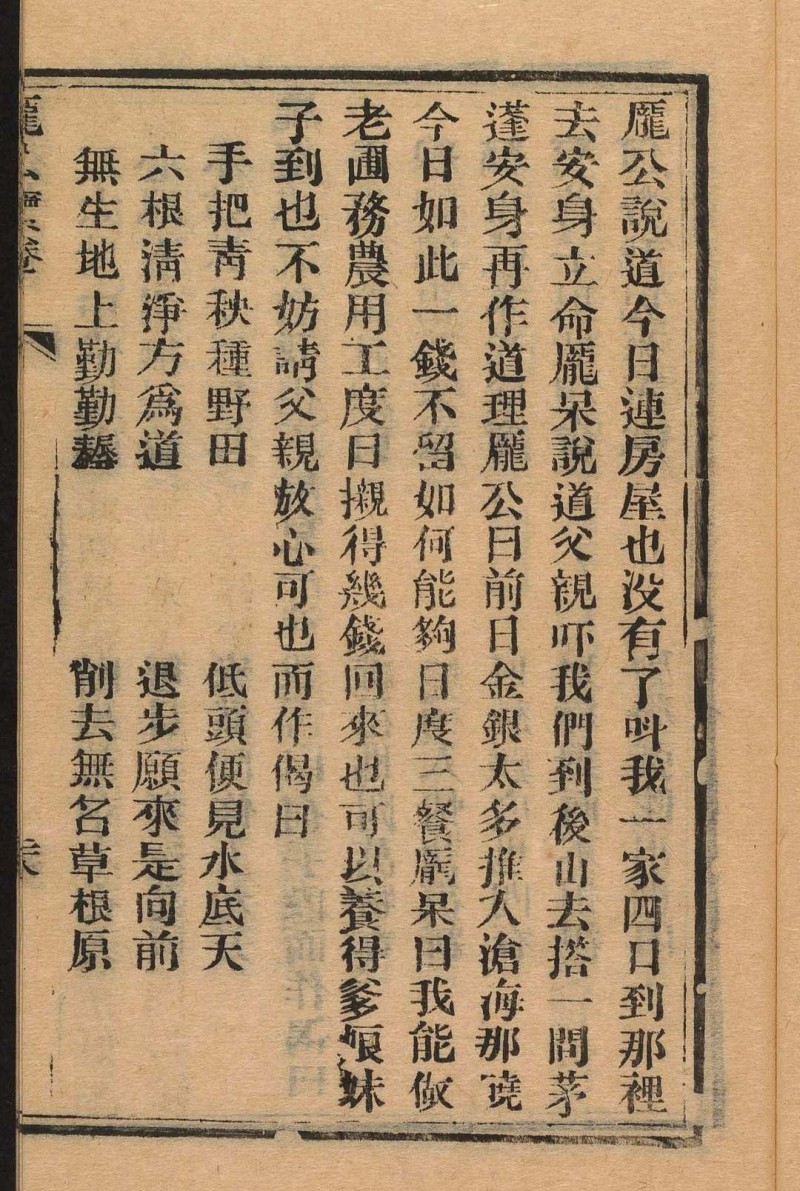 龎公說道今日連房屋也没有了呌我一家四口到那裡
去安身立命龎呆說道父親吓我們到後山去搭一間茅
蓬安身再作道理龎公曰前日金銀太多推入滄海那曉
今日如此一錢不留如何能夠日度三餐龎呆曰我能做
老圃務農用工度日撰得幾錢回來也可以養得爹娘妹
子到也不妨請父親放心可也而作偈曰
手把靑秧種野田　低頭便見水底天
六根淸淨方爲道　退步願來是向前
無生地上勤勤耨　削去無名草根原
龎公寶卷